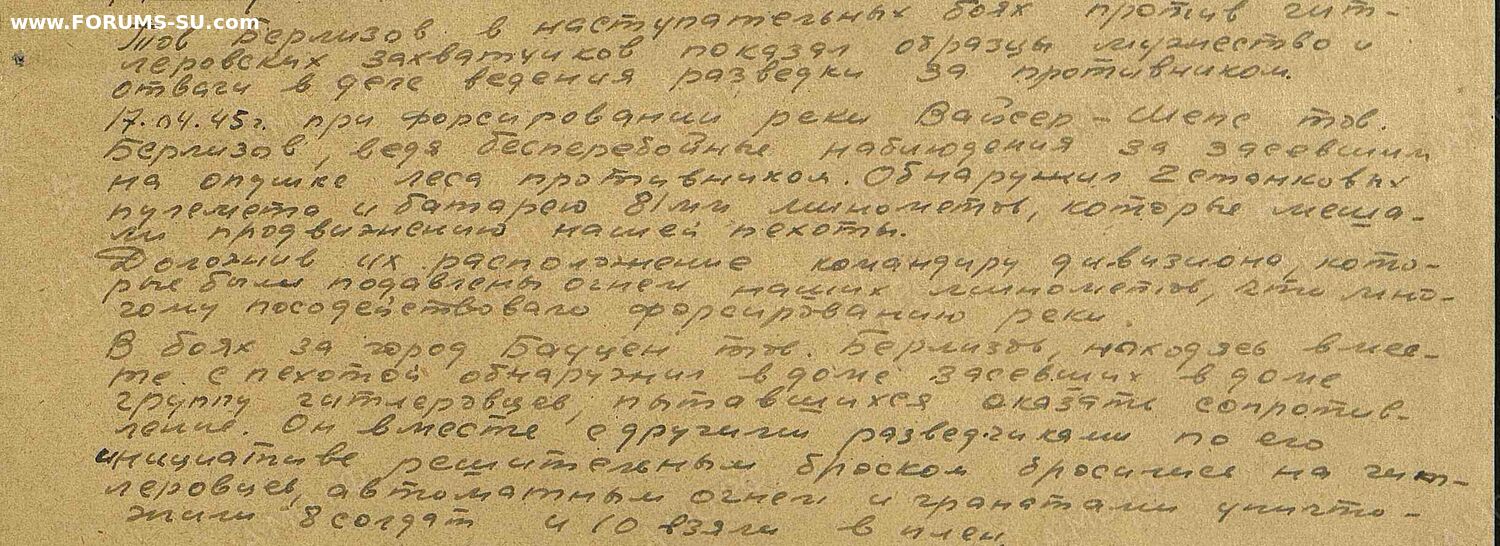 www.FORUMS-SU.com
Тов Берлизов в наступательных боях против гит-
леровских захватчиков показал образцы мужество и
отваги в деле ведения разведки за противником.
17.04.45г. при форсировании реки Вайсер-Шепс тов.
Берлизов, ведя бесперебойные наблюдения за засевшим
на опушке леса противником. Обнаружил 2 станковых
пулемета и батарею 81мм минометов, которые меша-
ли продвижению нашей пехоты.
Доложив их расположение командиру дивизиона, кото-
рые были подавлены огнем наших минометов, что мно-
гому посодействовало форсированию реки.
В боях за город Бауцен тов. Берлизов, находясь вмес-
те с пехотой обнаружил в доме засевших в доме
группу гитлеровцев, пытавшихся оказать сопротив-
ление. Он вместе с другими разведчиками по его
инициативе решительным броском бросились на гит-
леровцев, автоматным огнем и гранатами уничто-
жили 8 солдат и 10 взяли в плен.